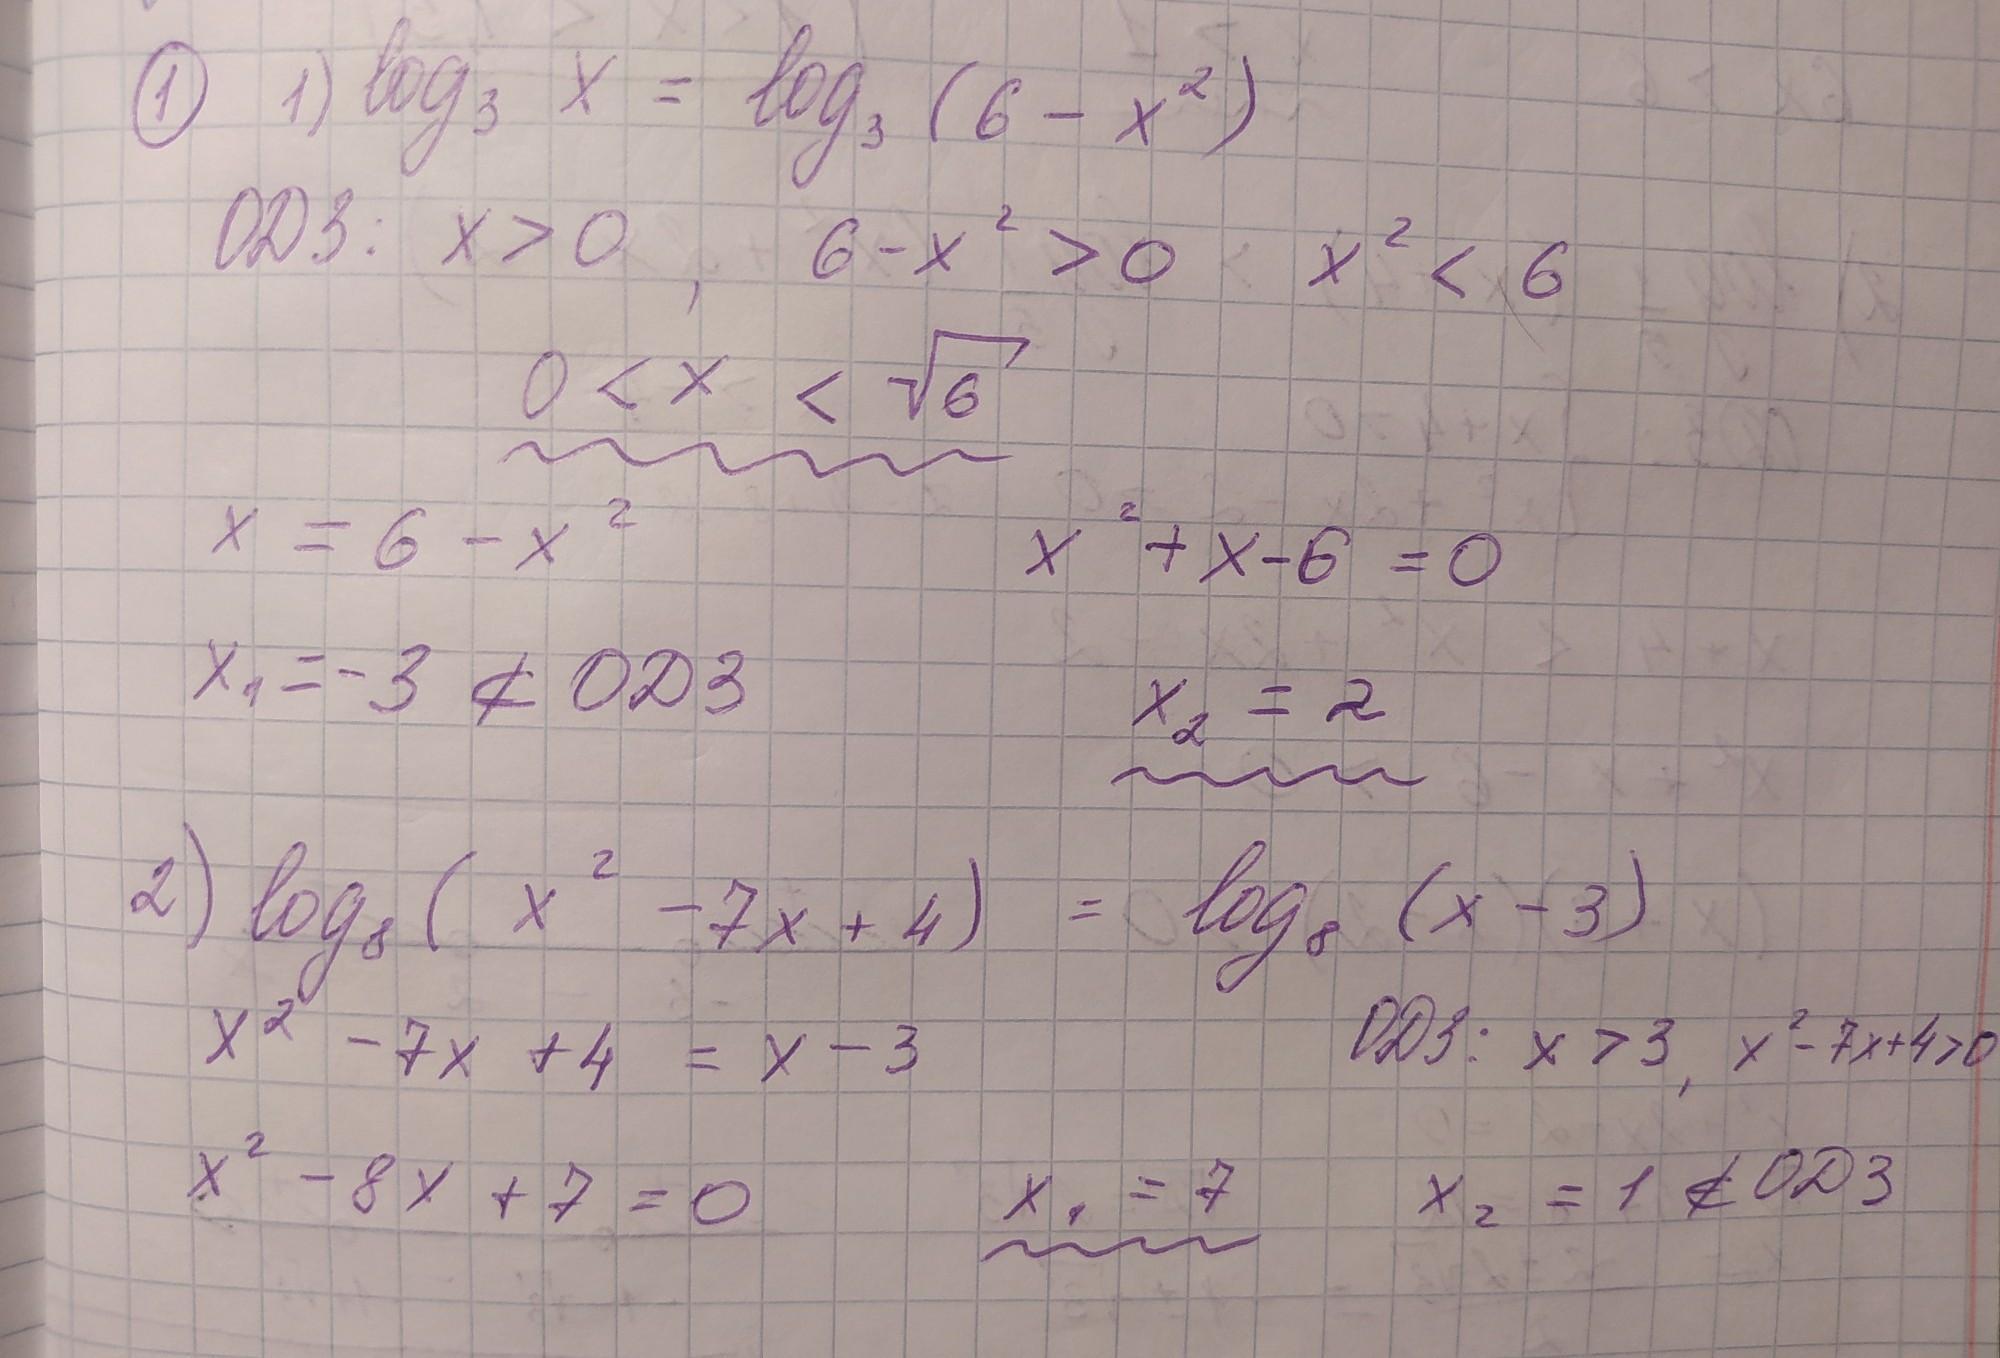 ① 1) log₃ x = log₃ (6 - x²)
ОДЗ: x > 0, 6 - x² > 0 x² < 6
0 < x < √6
x = 6 - x² x² + x - 6 = 0
x₁ = -3 ⊄ ОДЗ x₂ = 2
2) log₈ (x² - 7x + 4) = log₈ (x - 3)
x² - 7x + 4 = x - 3 ОДЗ: x > 3, x² - 7x + 4 > 0
x² - 8x + 7 = 0 x₁ = 7 x₂ = 1 ⊄ ОДЗ